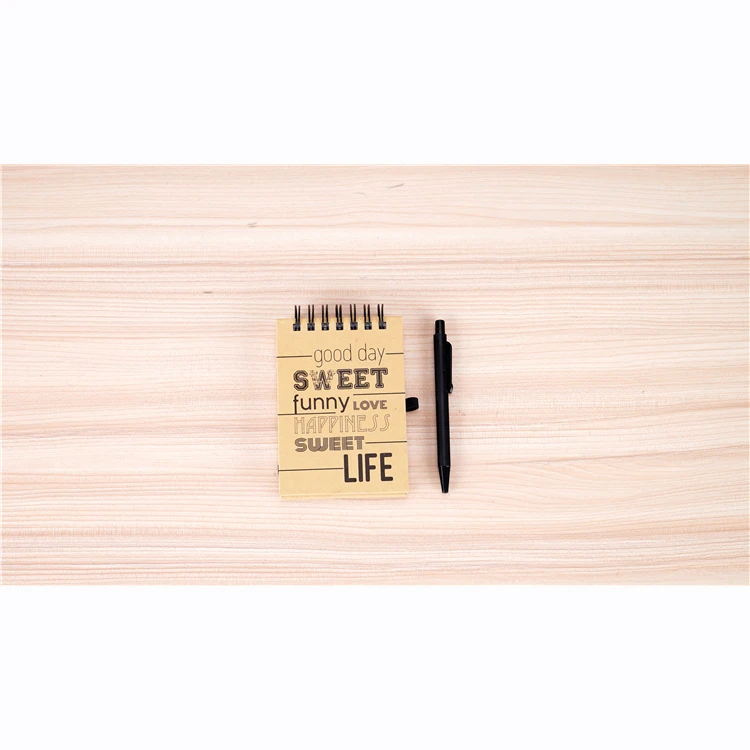 good day
SWEET
funny LOVE
HAPPINESS
SWEET
LIFE